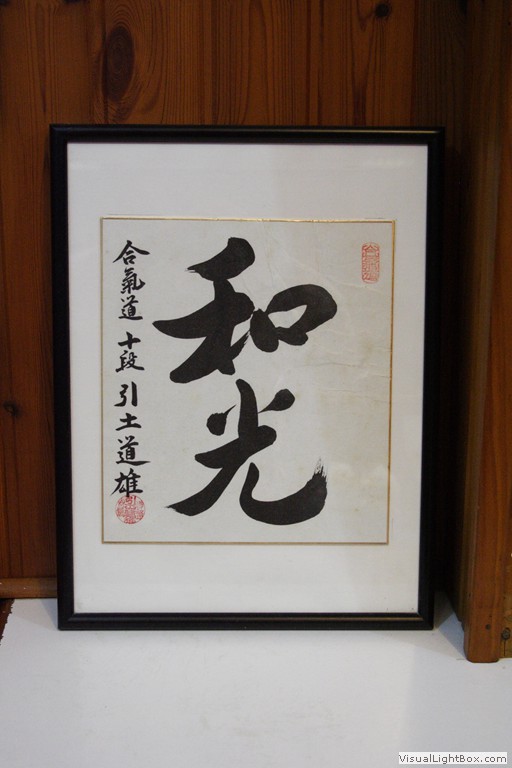 和光
合氣道 十段 引土道雄
VisualLightBox.com